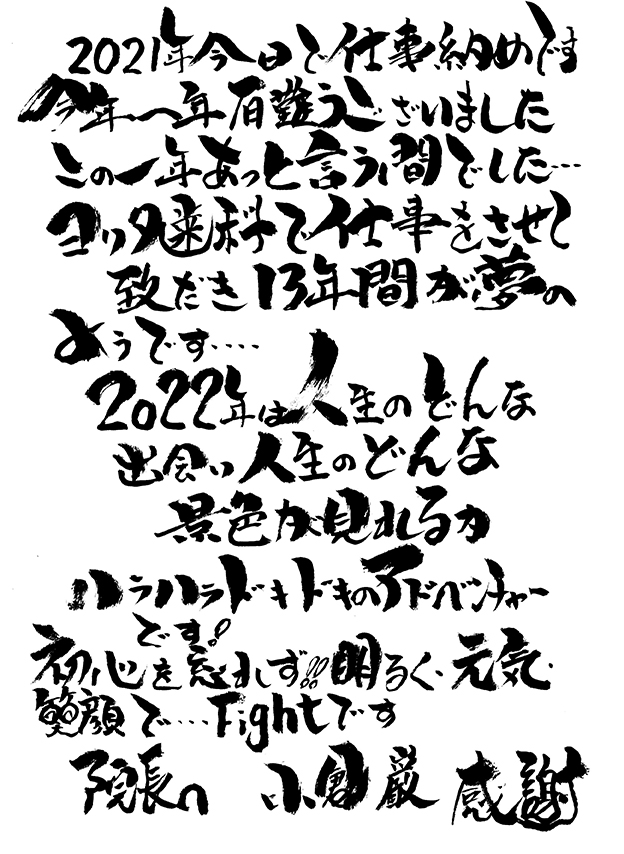 2021年今日で仕事納めです
今年一年有難うございました
この一年あっと言う間でした…
ヨリタ歯科で仕事をさせて
致だき13年間が夢の
ようです‥‥
2022年は人生のどんな
出会い人生のどんな
景色が見れるか
ハラハラドキドキのアドベンチャー
です!
初心を忘れず!!明るく・元気・
笑顔で…Fightです
院長へ 小倉 厳 感謝